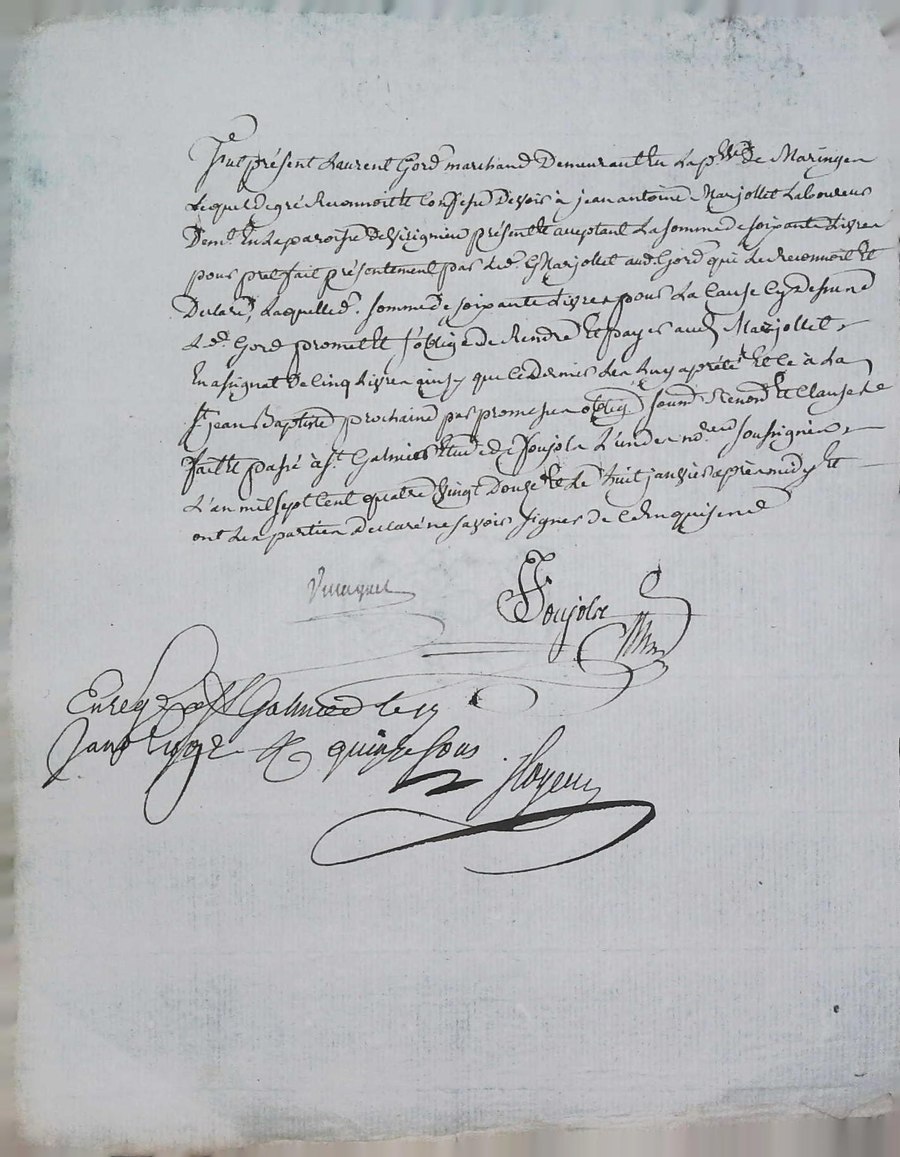 Fut présent Laurent Gord marchand Demeurant En La p.sse de Maringen
Lequel De gré Reconnoit Et Confesse Devoir à jean antoine Marjollet Laboureur
Dem.t En La paroisse De Virignieu présent Et aceptant La somme de soixante Livres
pour pret fait présentement par Led. Marjollet aud. Gord qui Le Reconnoit Et
Declare, Laquelle d. somme de soixante Livres pour La Cause Cy Dessus
Led. Gord promet Et s'oblige de Rendre Et payer aud Marjollet
En asignat De Cinq Livres ainsy que Ce Dernier Les Luy a prété Et Ce à La
S.t jean Baptiste prochaine par promesse oblig Renond Et Clauses
fait Et passé à S.t Galmier Etude de Poujolx L'un des no.res soussignés
L'an mil sept Cent quatre Vingt Douze Et Le huit janvier après midy Et
ont Les parties Declaré ne savoir signer de Ce Enquises
Poujolx
Enreg a St Galmier le
Janv 1792 quinze sous